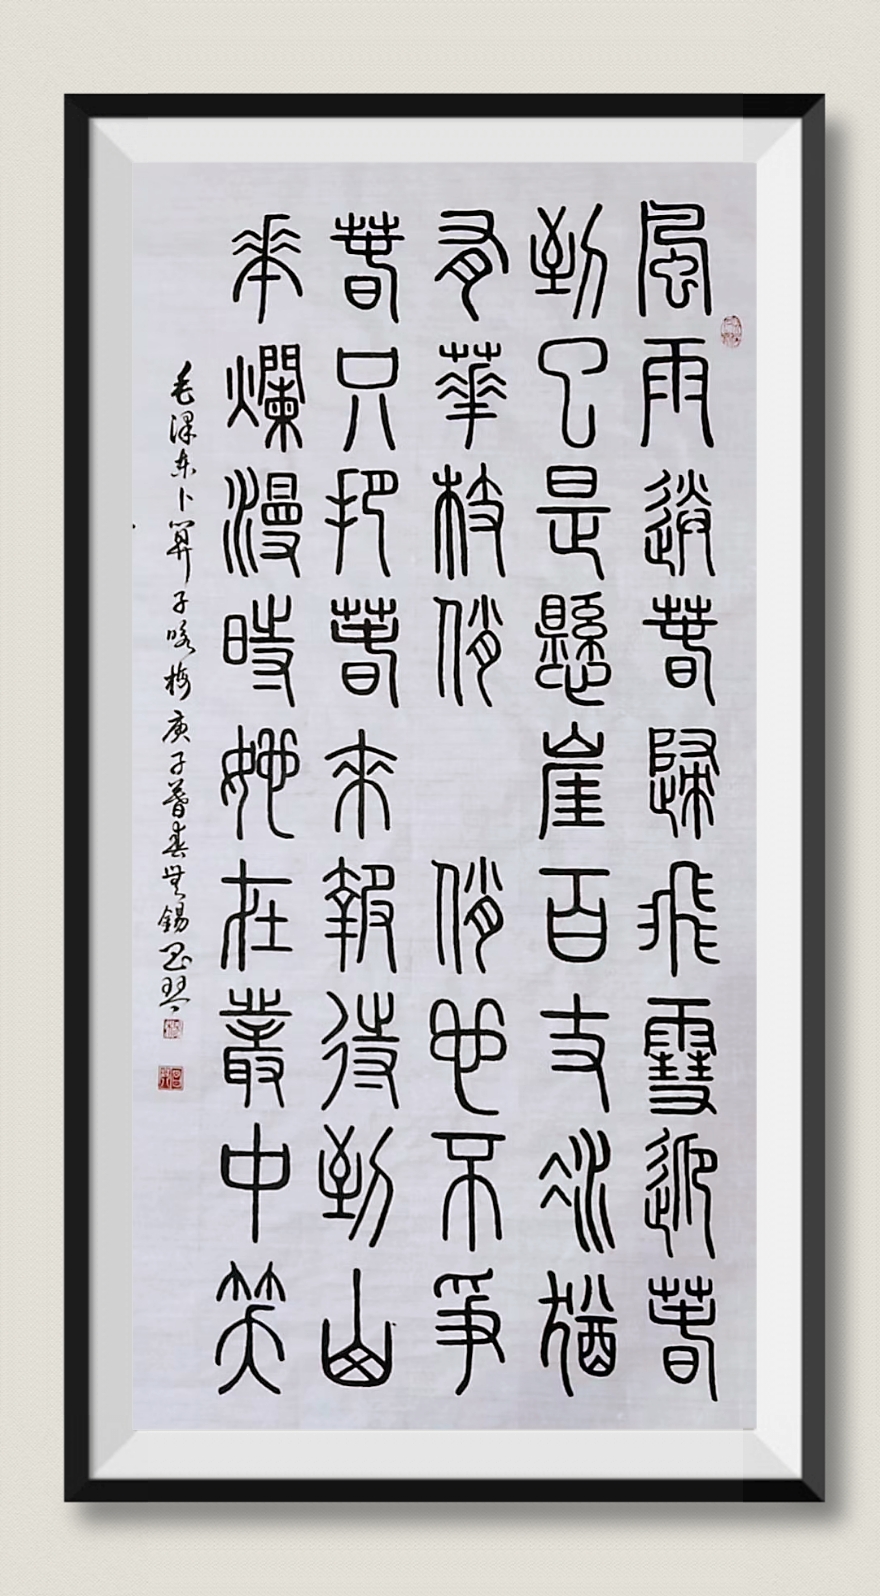 風雨送春歸飛雪迎春
到已是懸崖百丈冰猶
有華枝俏俏也不爭
春只把春來報待到山
華爛漫時她在叢中笑
毛澤东卜算子咏梅庚子暮春無錫琴